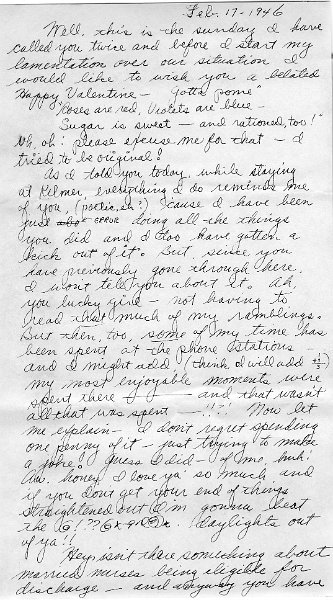 Feb. 17-1946
Well, this is the sunday I have
called you twice and before I start my
lamentation over our situation I
would like to wish you a belated
Happy Valentine - Gotta pome"
"Roses are red, Violets are blue -
Sugar is sweet - and rationed, too!"
Oh, oh! please excuse me for that - I
tried to be original!
As I told you today, while staying
at Kilmer, everything I do reminds me
of you, (poetic, eh?) 'cause I have been
just error doing all the things
you did and I too have gotten a
kick out of it. But since you
have previously gone through here
I wont tell you about it. Ah,
you lucky girl - not having to
read that much of my ramblings.
But then, too, some of my time has
been spent at the phone stations
and I might add (think I will add +1/3)
my most enjoyable moments were
spent there - and that wasn't
all that was spent - !!?! Now let
me explain - I don't regret spending
one penny of it - just trying to make
a joke. Guess I did - of me, huh!
Aw. honey I love ya' so much and
if you dont get your end of things
straightened out I'm gonna beat
the daylights out
of ya!!
Hey, isn't there something about
married nurses being eligible for
discharge - and you have